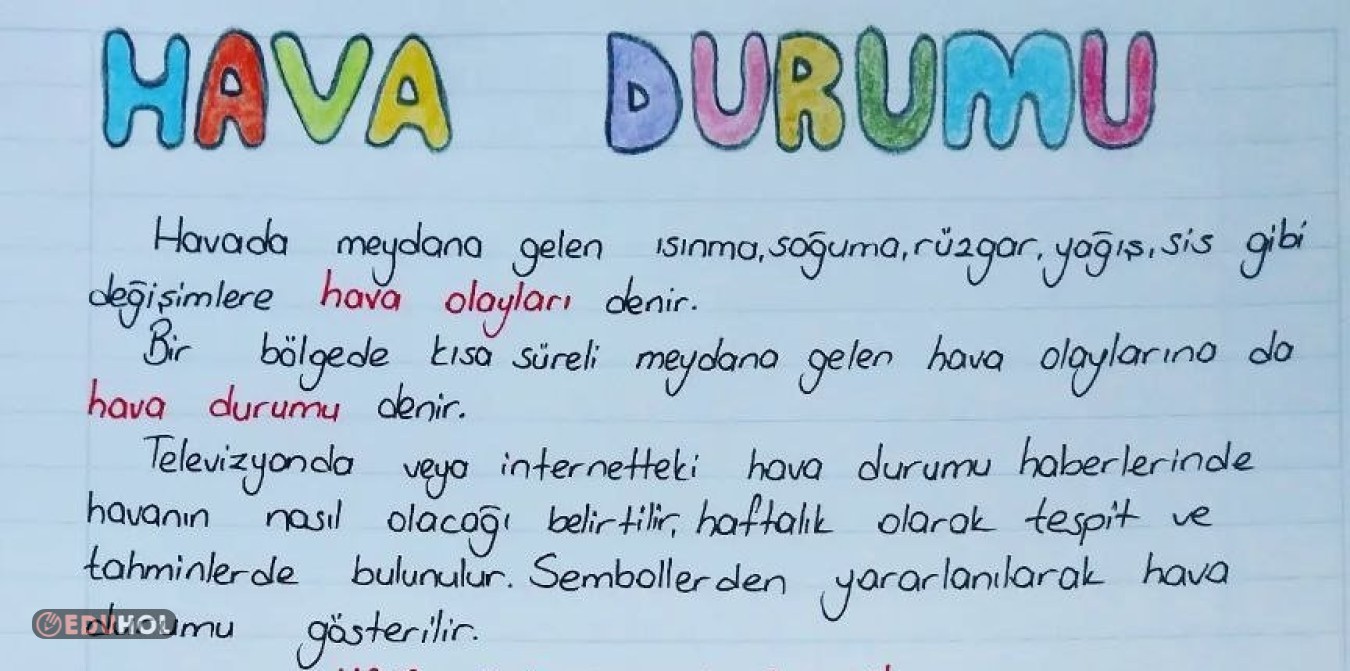 HAVA DURUMU
Havada meydana gelen ısınma, soğuma, rüzgar, yağış, sis gibi
değişimlere hava olayları denir.
Bir bölgede kısa süreli meydana gelen hava olaylarına da
hava durumu denir.
Televizyonda veya internetteki hava durumu haberlerinde
havanın nasıl olacağı belirtilir, haftalık olarak tespit ve
tahminlerde bulunulur. Sembollerden yararlanılarak hava
durumu gösterilir.
EDUHOL